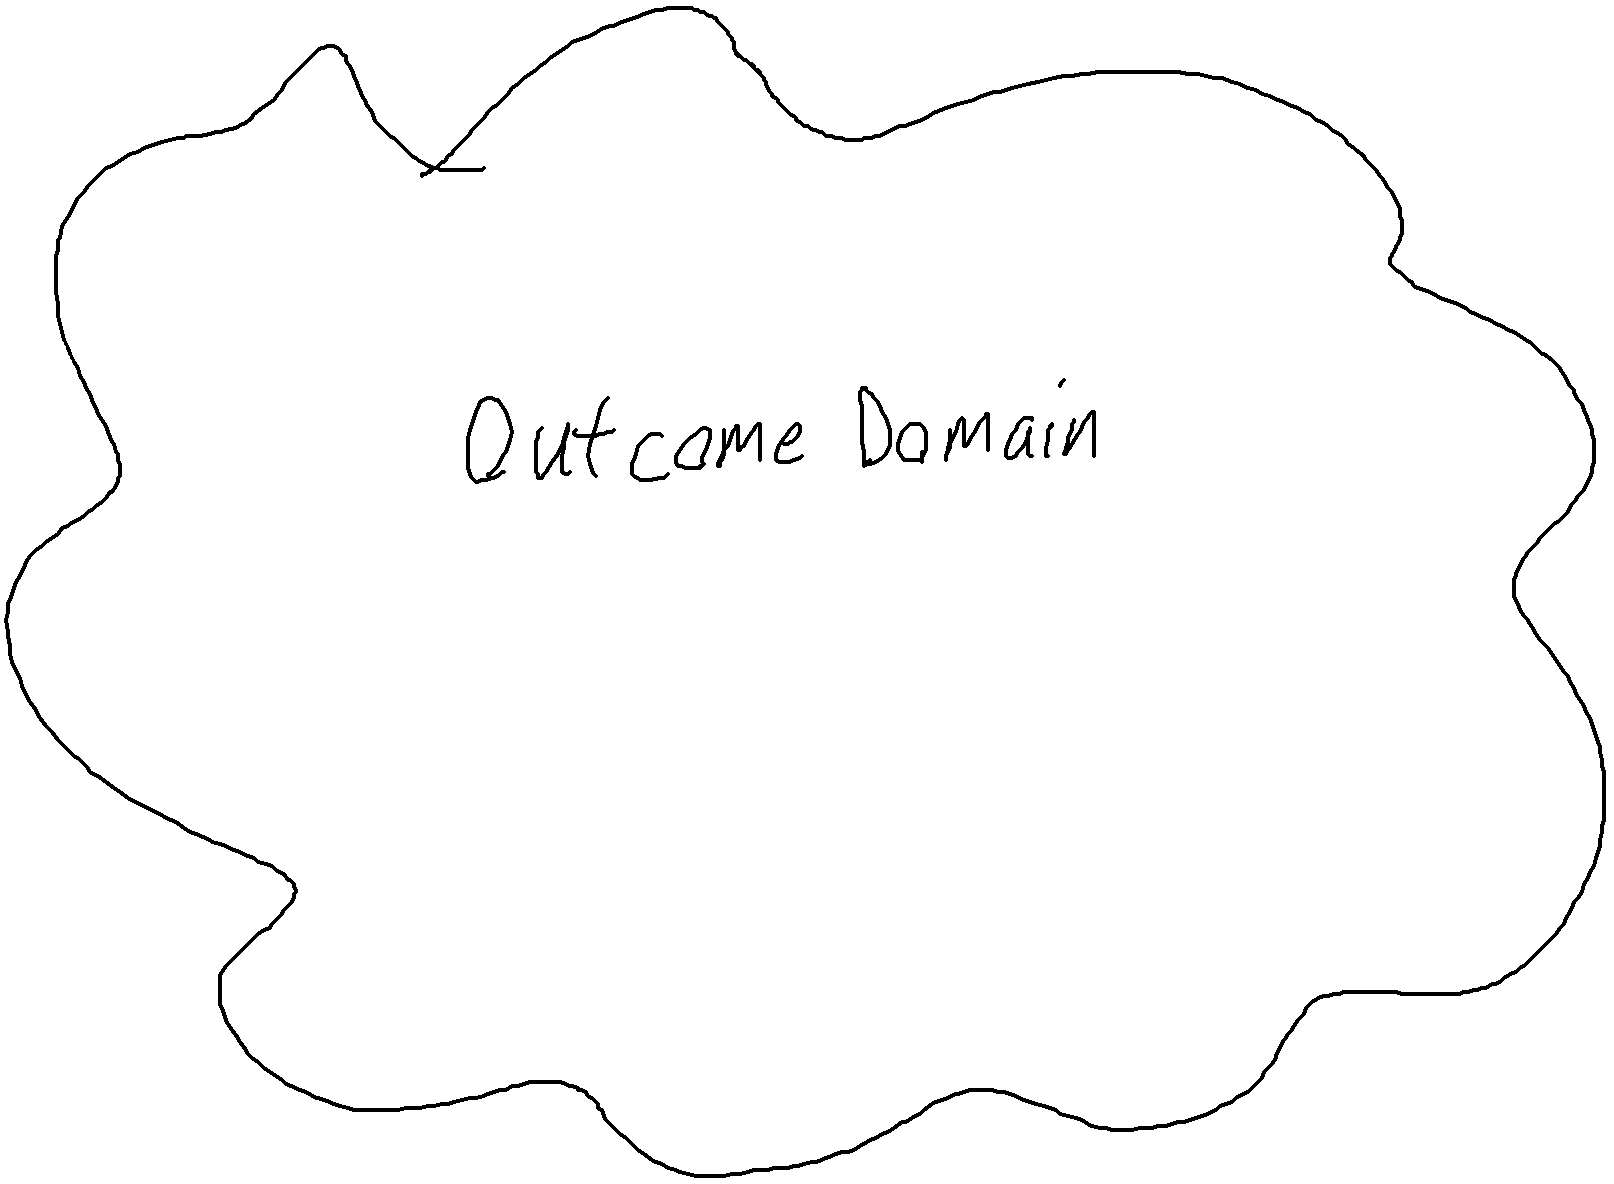 Outcome Domain